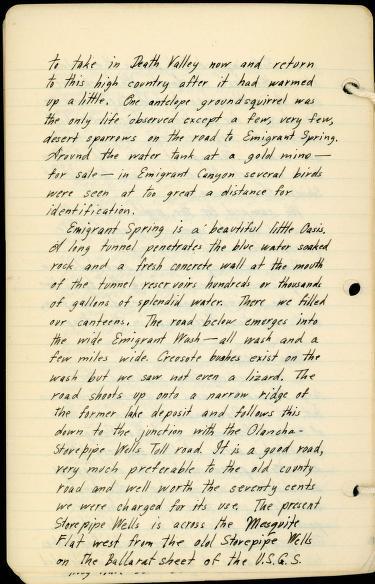 to take in Death Valley now and return
to this high country after it had warmed
up a little. One antelope groundsquirrel was
the only life observed except a few, very few,
desert sparrows on the road to Emigrant Spring.
Around the water tank at a gold mine —
for sale — in Emigrant Canyon several birds
were seen at too great a distance for
identification.
Emigrant Spring is a beautiful little Oasis.
A long tunnel penetrates the blue water soaked
rock and a fresh concrete wall at the mouth
of the tunnel reservoirs hundreds or thousands
of gallons of splendid water. There we filled
our canteens. The road below emerges into
the wide Emigrant Wash — all wash and a
few miles wide. Creosote bushes exist on the
wash but we saw not even a lizard. The
road shoots up onto a narrow ridge of
the former lake deposit and follows this
down to the junction with the Olancha-
Stovepipe Wells Toll road. It is a good road,
very much preferable to the old county
road and well worth the seventy cents
we were charged for its use. The present
Stovepipe Wells is across the Mesquite
Flat west from the old Stovepipe Wells
on the Ballarat sheet of the U.S.G.S.